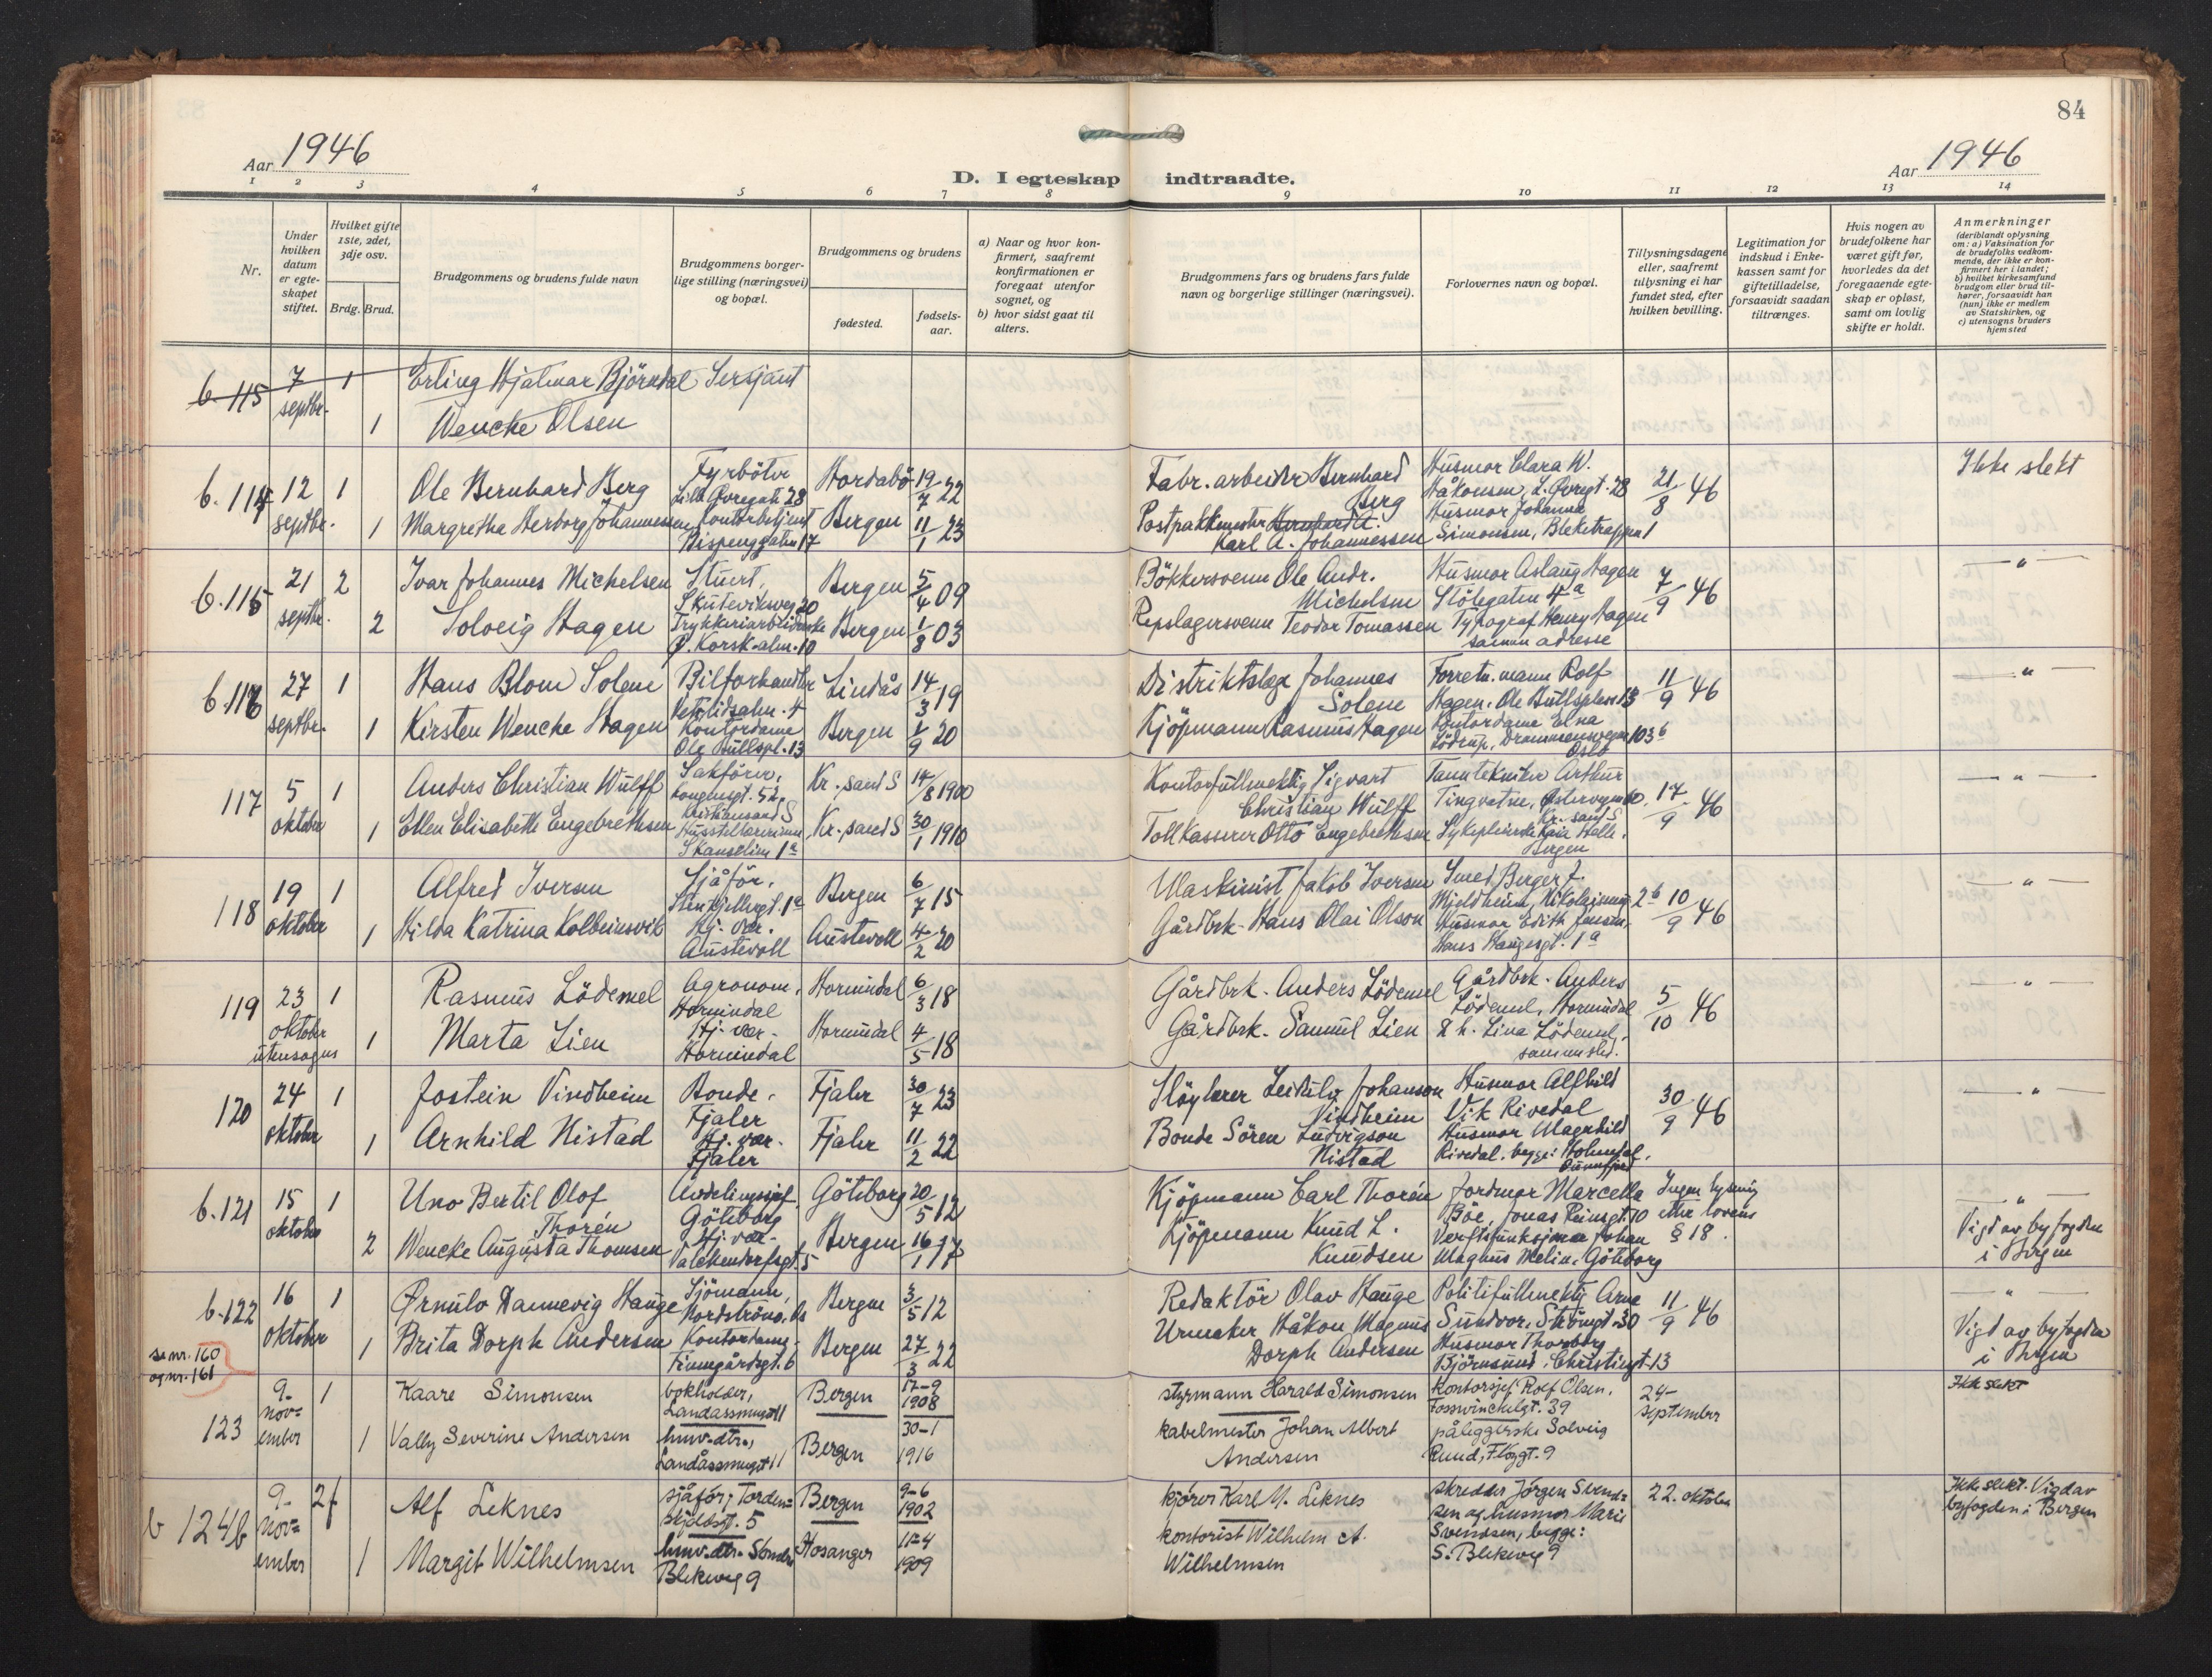 84
Aar 1946
Aar 1946
D. I egteskap indtraadte.
1 2 3 4 5 6 7 8 9 10 11 12 13 14
Nr.
Under hvilken datum er egteskapet stiftet.
Hvilket gifte 1ste, 2det, 3dje osv.
Brdg. Brud.
Brudgommens og brudens fulde navn
Brudgommens borgerlige stilling (næringsvei) og bopæl.
Brudgommens og brudens
fødested.
fødselsaar.
a) Naar og hvor konfirmert, saafremt konfirmationen er foregaat utenfor sognet, og
b) hvor sidst gaat til alters.
Brudgommens fars og brudens fars fulde navn og borgerlige stillinger (næringsvei).
Forlovernes navn og bopæl.
Tillysningsdagene eller, saafremt tillysning ei har fundet sted, efter hvilken bevilling.
Legitimation for indskud i Enkekassen samt for giftetilladelse, forsaavidt saadan tiltrænges.
Hvis nogen av brudefolkene har været gift før, hvorledes da det foregaaende egteskap er opløst, samt om lovlig skifte er holdt.
Anmerkninger
(deriblandt oplysning om: a) Vaksination for de brudefolks vedkommende, der ikke er konfirmert her i landet; b) hvilket kirkesamfund brudgom eller brud tilhører, forsaavidt han (hun) ikke er medlem av Statskirken, og c) utensogns bruders hjemsted
b. 115 7 septbr. 1 Erling Hjalmar Björndal Sersjant
1 Wencke Olsen
b. 114 12 septbr. 1 Ole Bernhard Berg Fyrböter Lille Øvregate 28 Hordabö 19/7 22 Fabr. arbeider Bernhard Berg Husmor Clara W. Håkonsen, L. Øvregt. 28 21/8 46 Ikke slekt
1 Margretha Herborg Johannessen Kontorbetjent Bispenggaten 17 Bergen 11/1 23 Postpakkmester Bernhard A. Karl A. Johannessen Husmor Johanna Simonsen, Bleketrappen 1
b. 115 21 septbr. 2 Ivar Johannes Michelsen Stuert, Skuteviksveg 20 Bergen 5/4 09 Bökkersvenn Ole Andr. Michelsen Husmor Aslaug Hagen Stölegaten 4a 7/9 46 — " —
2 Solveig Hagen Trykkeriarbeiderske Ø. Korsk.alm. 10 Bergen 1/8 03 Repslagersvenn Teodor Tomassen Typograf Henry Hagen samme adresse
b. 116 27 septbr. 1 Hans Blom Solem Bilforhandler Vetrlidsalm. 4 Lindås 14/3 19 Distriktslege Johannes Solem Forretn. mann Rolf Hagen, Ole Bullspless 13 11/9 46 — " —
1 Kirsten Wencke Hagen Kontordame Ole Bullspl. 13 Bergen 1/9 20 Kjöpmann Rasmus Hagen Kontordame Elna Lödrup, Drammensvegen 103b Oslo
117 5 oktober 1 Anders Christian Wulff Sakförer, Kristiansand S Kr. sand S 14/8 1900 Kontorfullmektig Sigvart Christian Wulff Tanntekniker Arthur Tingvatne, Østerveien Kr. sand S 17/9 46 — " —
1 Ellen Elisabeth Engebrethsen Husstellærerinne Skanselien 1a Kr. sand S 30/1 1910 Tollkasserer Otto Engebrethsen Sykepleierske Kaia Halle, Bergen
118 19 oktober 1 Alfred Iversen Sjåför, Stenkjellergt. 1a Bergen 6/7 15 Maskinist Jakob Iversen Smed Berger J. Mjeldheim, Nikolaismug 2b 10/9 46 — " —
1 Hilda Katrina Kolbeinsvik Hj. vær. Austevoll Austevoll 4/2 20 Gårdbrk. Hans Olai Olson Husmor Edith Jensen, Hans Haugesgt. 1a
119 23 oktober utensogns 1 Rasmus Lödemel Agronom, Hornindal Hornindal 6/3 18 Gårdbrk. Anders Lödemel Gårdbrk. Anders Lödemel, Hornindal 5/10 46 — " —
1 Marta Lien Hj. vær. Hornindal Hornindal 4/5 18 Gårdbrk. Samuel Lien Lina Lödemel, sammested.
120 24 oktober 1 Jostein Vindheim Bonde, Fjaler Fjaler 30/7 23 Slöylærer Leidulv Johanson Vindheim Husmor Alfhild Vik Rivedal 30/9 46 — " —
1 Arnhild Nistad Hj. vær. Fjaler Fjaler 11/2 22 Bonde Sören Ludvigson Nistad Husmor Magnhild Rivedal, begge: Holmedal,
b. 121 15 oktober 1 Uno Bertil Olof Thorén Avdelingssjef, Göteborg Göteborg 20/5 12 Kjöpmann Carl Thorén Jordmor Marcella Böe, Jonas Reinsgt. 10 Ingen lysning etter lovens § 18. — " —
2 Wencke Augusta Thomsen Hj. vær. Valckendorfsgt. 5 Bergen 16/1 17 Kjöpmann Knud L. Knudsen Verftsfunksjonær Johan Magnus Melin, Göteborg Vigd av byfogden i Bergen
b. 122 16 oktober 1 Ørnulv Dannevig Hauge Sjömann, Nordströno, Os Bergen 3/5 12 Redaktör Olav Hauge Politifullmektig Arne Sundvor, Strömgt. 30 11/9 46 — " —
1 Brita Dorph Andersen Kontordame, Finnegårdsgt. 6 Bergen 27/3 22 Urmaker Håkon Magnus Dorph Andersen Husmor Thorborg Björnsund, Christiesgt. 13 Vigd av byfogden i Bergen
se nr. 160
og nr. 161
123 9. november 1 Kaare Simonsen bokholder, Landåssmuget 11 Bergen 17-9 1908 styrmann Harald Simonsen kontorsjef Rolf Olsen, Fosswinckelgt. 39 24- september Ikke slekt
1 Vally Severine Andersen huv. dtr., Landåssmuget 11 Bergen 30-1 1916 kabelmester Johan Albert Andersen påleggerske Solveig Ruud, Fløygt. 9
b 124b 9. november 2f Alf Leknes sjåför, Tordenskjoldsgt. 5 Bergen 9-6 1902 kjörer Karl M. Leknes skredder Jörgen Svendsen og husmor Marie Svendsen, begge: S. Blekeveg 9 22. oktober Ikke slekt. Vigd av byfogden i Bergen
1 Margit Wilhelmsen huv. dtr. Söndre Blekeveg 9 Hosanger 11-4 1909 kontorist Wilhelm A. Wilhelmsen